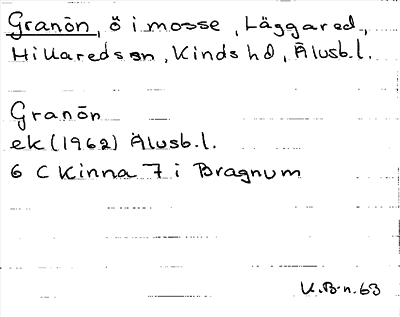 Granön, ö i mosse, Läggared,
Hillareds sn, Kinds hd, Älvsb.l.
Granön
ek (1962) Älvsb.l.
6 C Kinna 7 i Bragnum
K.B-n.63